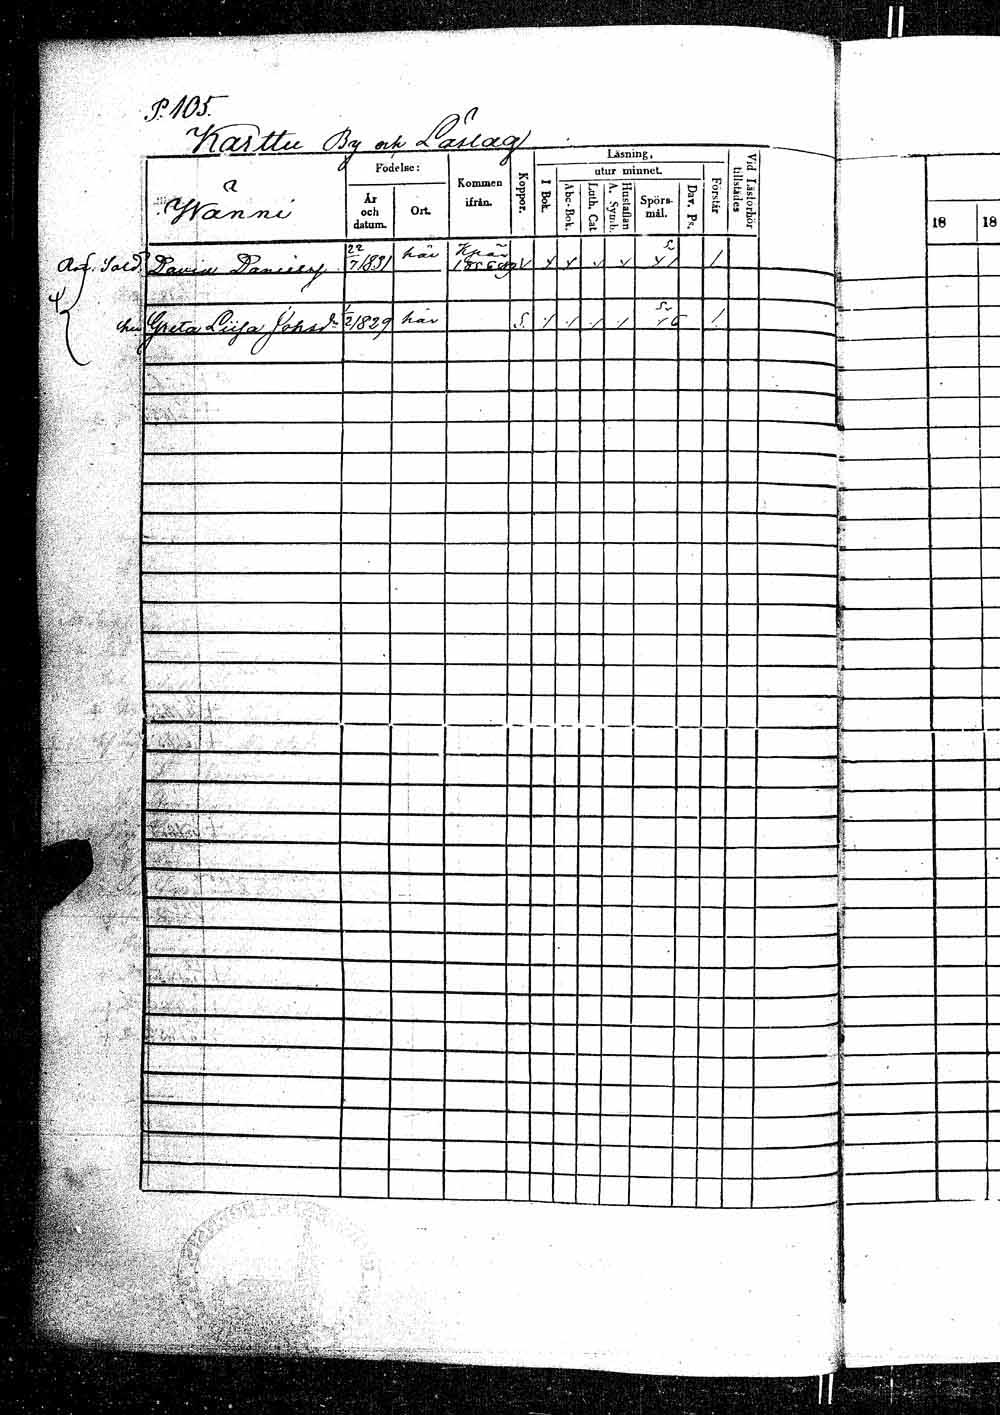 P. 105.
Karttu By och Läslag
Wanni
Födelse:
År och datum.
Ort.
Kommen ifrån.
Koppor.
Läsning,
I Bok.
utur minnet.
Abc-Bok.
Luth. Cat
Hustaflan A. Symb.
Spörs-mål.
Dav. Ps.
Förstår
Vid Läsförhör tillstädes
18 18
Sold. David 22/7 1831 här 1856
Greta Lisa Johsdr 1/2 1829 här S.